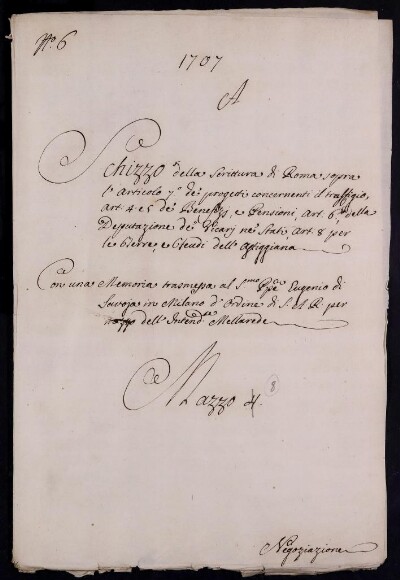 N.º 6
1707
A
Schizzo della Scrittura di Roma sopra
l'Articolo 7º de' progetti concernenti il traffigio,
art. 4 e 5 de' Benefizj, e Pensioni, Art. 6º della
Deputazione de' Vicarj nei Stati, Art. 8 per
le Terre, e Feudi dell'Astiggiana
Con una Memoria trasmessa al S.mo Ppe Eugenio di
Savoja in Milano d'Ordine di S. A. R. per
mezzo dell'Intend.te Mellarede
Mazzo 4. 8
Negoziazione